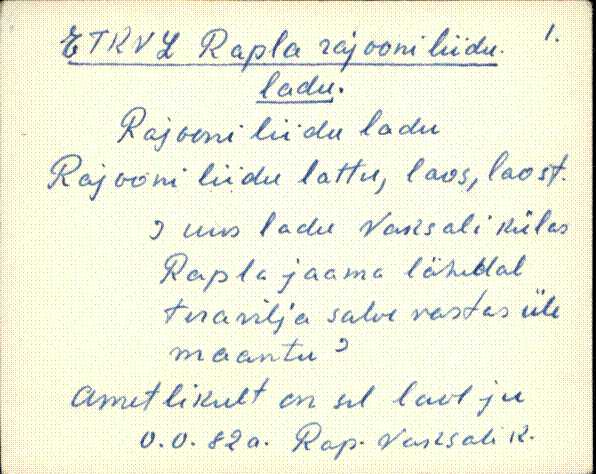 ETKVL Rapla rajooni liidu 1.
ladu.
Rajooni liidu ladu
Rajooni liidu lattu, laos, laost.
? uus ladu Vaksali külas
Rapla jaama lähedal
teravilja salve vastas üle
maantee ?
Ametlikult on sel laol ju
O.V. 82a. Rap. Vaksali k.